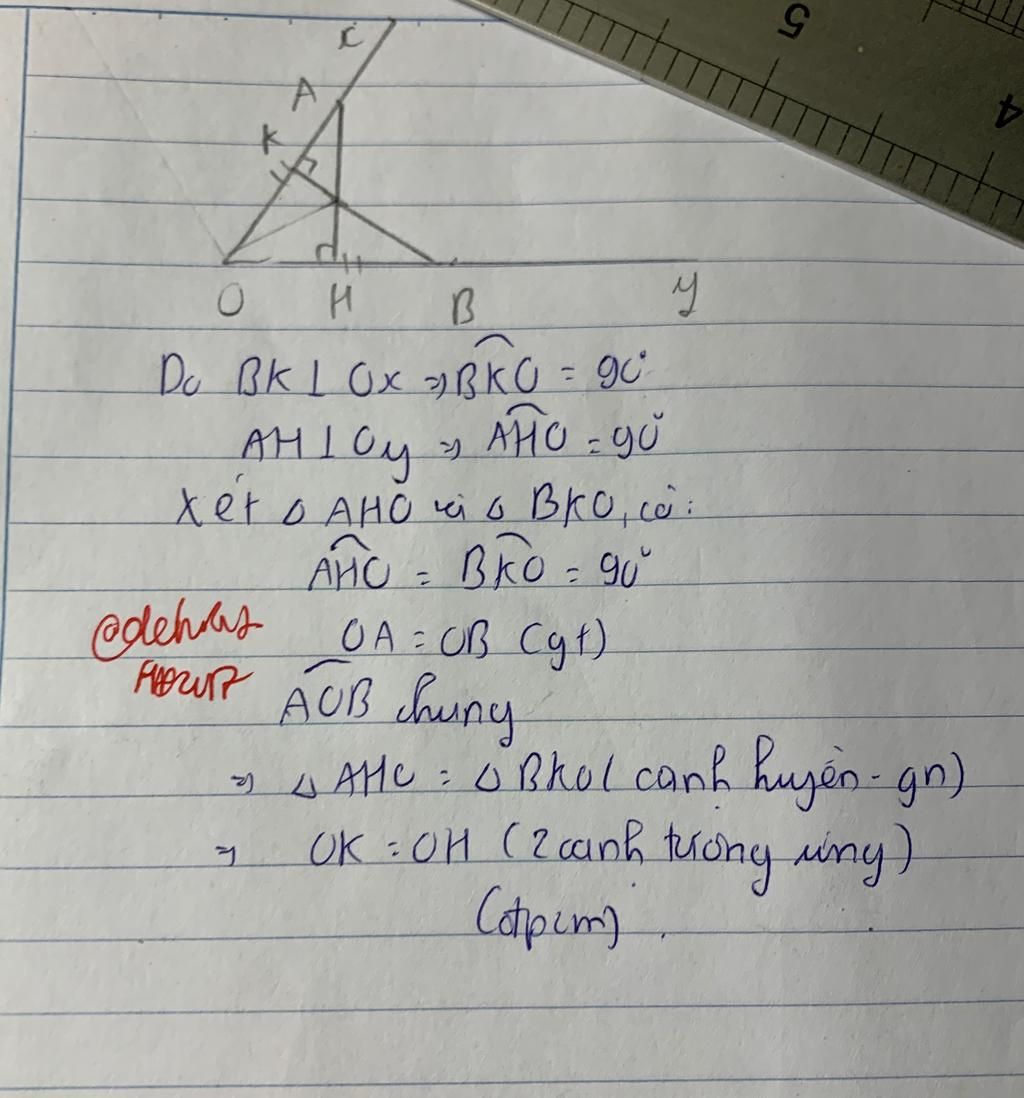 5
4
x
A
K
O H B y
Do BK ⊥ Ox ⇒ \widehat{BKO} = 90°
AH ⊥ Oy ⇒ \widehat{AHO} = 90°
Xét △ AHO và △ BKO, có:
\widehat{AHO} = \widehat{BKO} = 90°
OA = OB (gt)
\widehat{AOB} chung
⇒ △ AHO = △ BKO ( cạnh huyền - gn)
⇒ OK = OH ( 2 cạnh tương ứng )
(đpcm) .